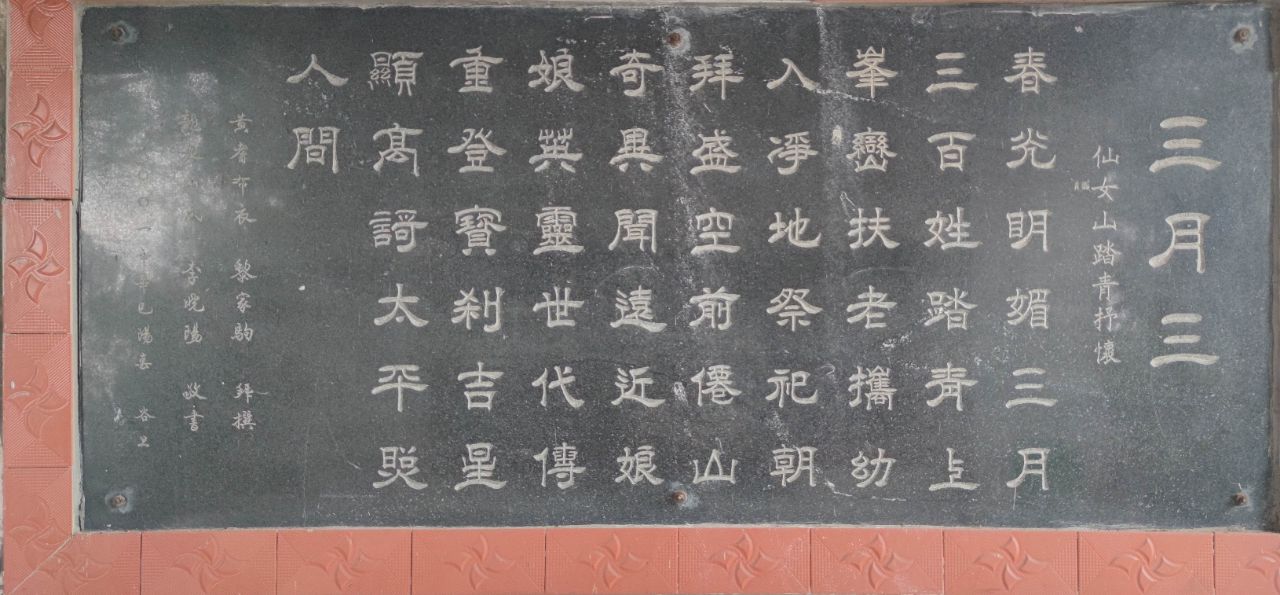 三月三
仙女山踏青抒懷
春光明媚三月
三百姓踏青上
峯巒扶老攜幼
入凈地祭祀朝
拜盛空前僊山
奇異聞遠近娘
娘英靈世代傳
重登寶剎吉星
顯高歌太平照
人間
黃睿布衣 黎家駒 拜撰
李曉陽 敬書
巳陽春 谷旦